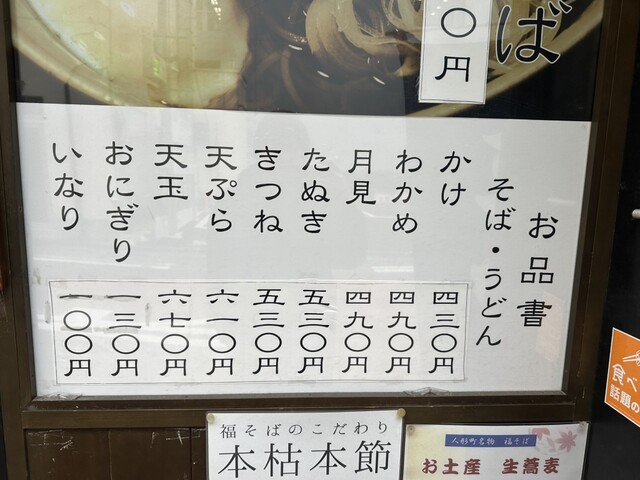 ば
〇円
お品書
そば・うどん
かけ 四三〇円
わかめ 四九〇円
月見 四九〇円
たぬき 五三〇円
きつね 五三〇円
天ぷら 六一〇円
天玉 六七〇円
おにぎり 一三〇円
いなり 一〇〇円
食べ
話題の
福そばのこだわり
本枯本節
人形町名物 福そば
お土産 生蕎麦